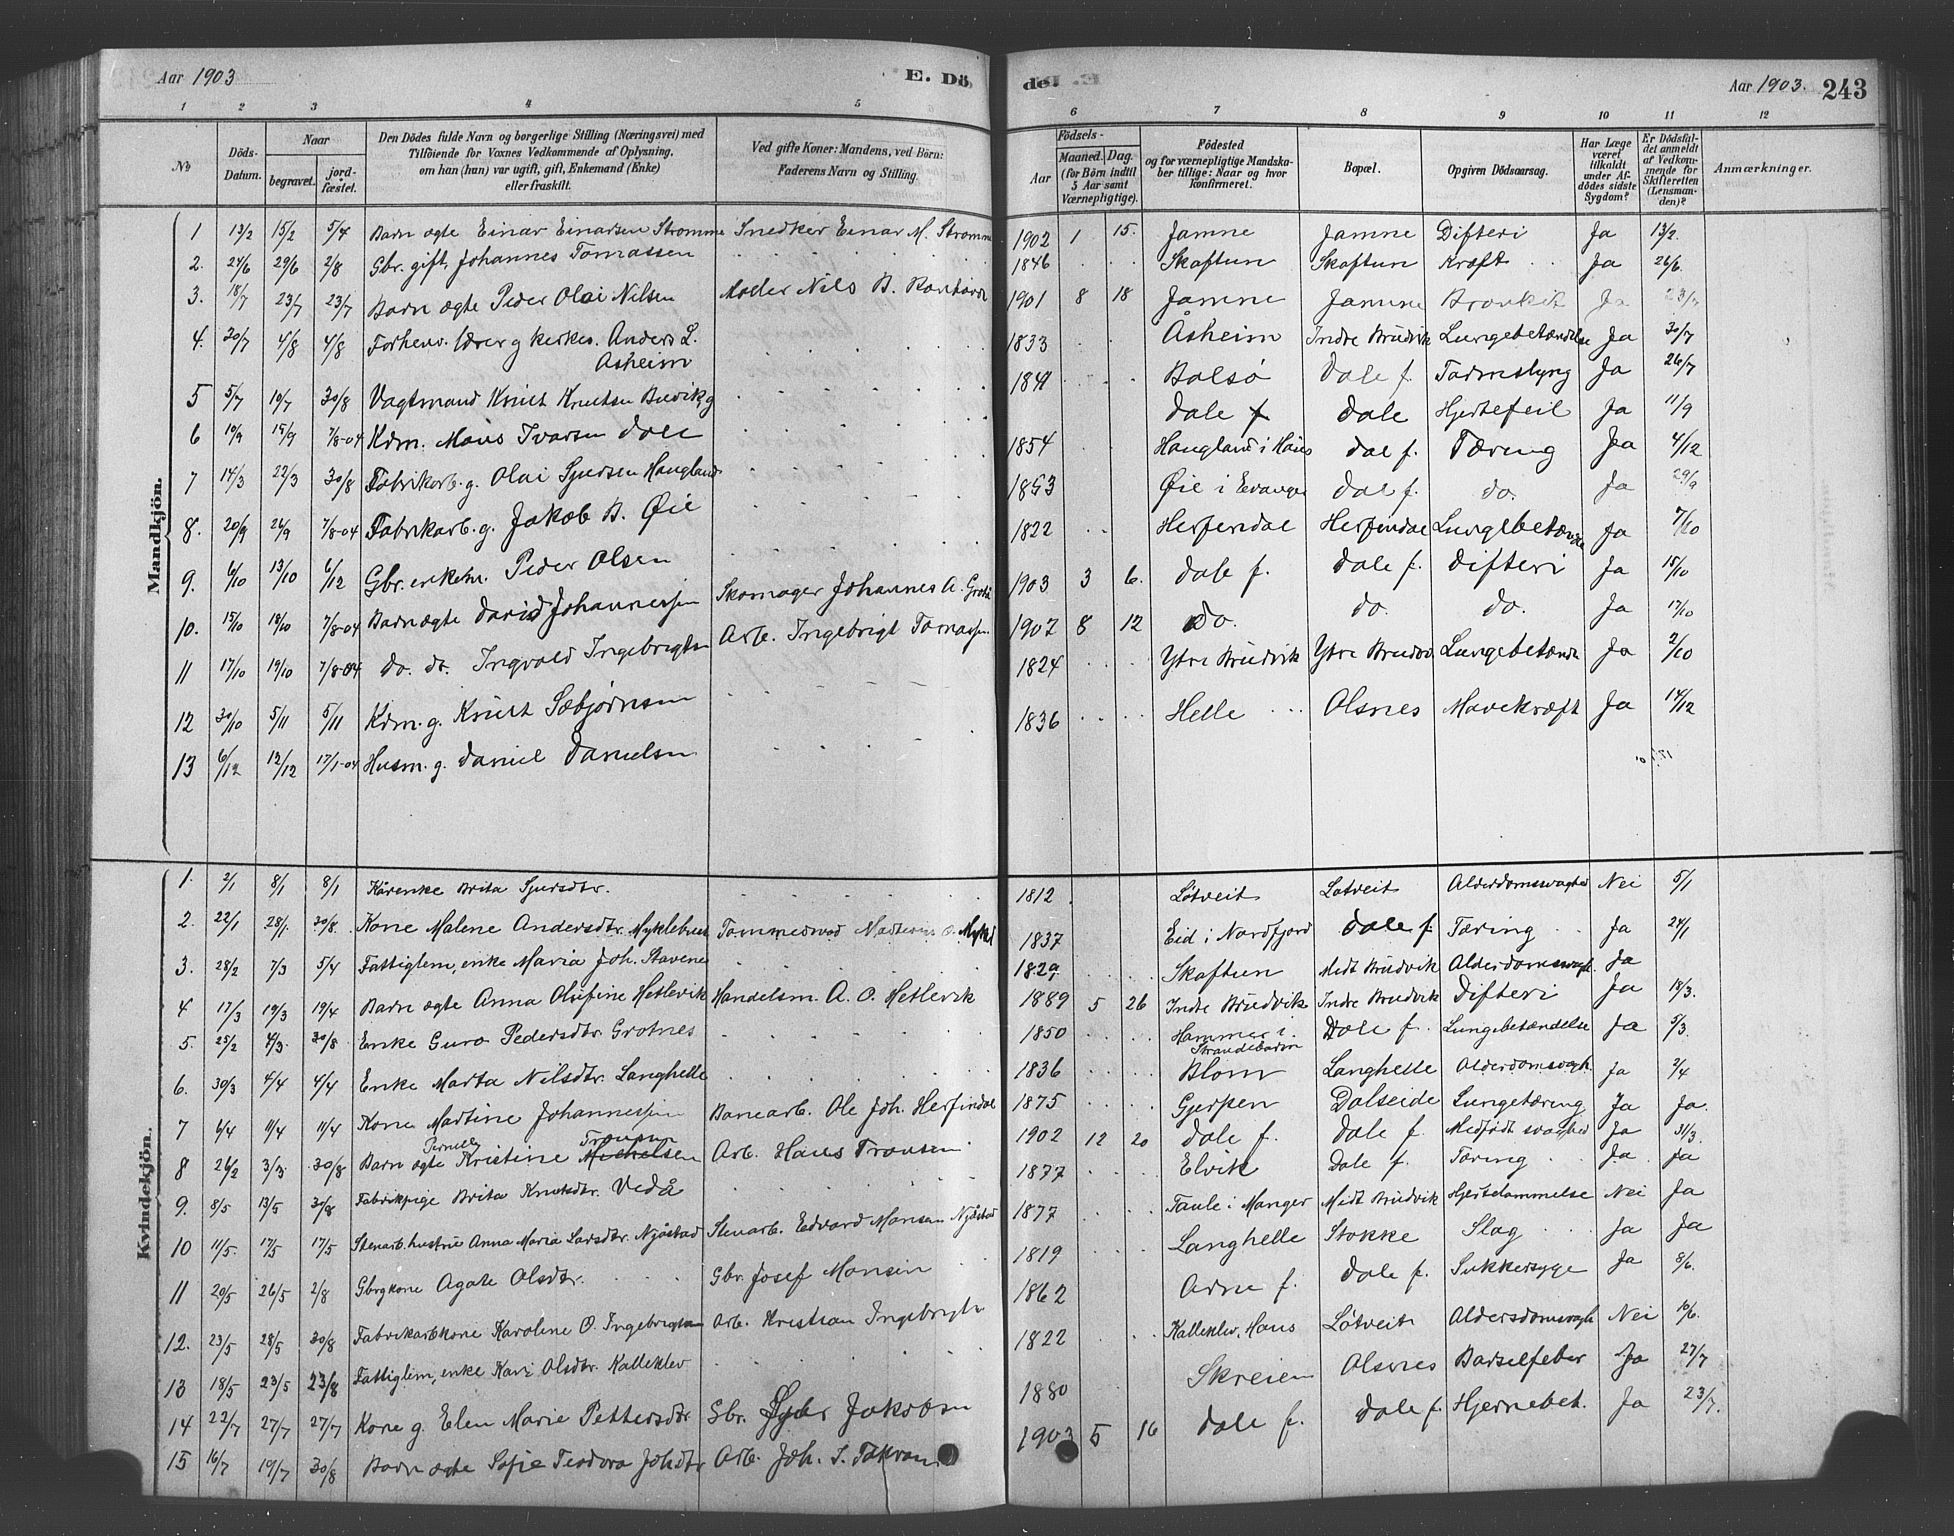 Aar 1903 E. Dö de. Aar 1903. 243
1 2 3 4 5 6 7 8 9 10 11 12
No Döds-Datum. Naar begravet. jord-fæstet. Den Dödes fulde Navn og borgerlige Stilling (Næringsvei) med Tilföiende for Voxnes Vedkommende af Oplysning, om han (hun) var ugift, gift, Enkemand (Enke) eller fraskilt. Ved gifte Koner: Mandens, ved Börn: Faderens Navn og Stilling. Födsels- Aar Maaned. Dag. (for Börn indtil 5 Aar samt Værnepligtige). Födested og for værnepligtige Mandskaber tillige: Naar og hvor konfirmeret. Bopæl. Opgiven Dödsaarsag. Har Læge været tilkaldt under Afdödes sidste Sygdom? Er Dödsfaldet anmeldt af Vedkommende for Skifteretten (Lensmanden)? Anmærkninger.
Mandkjön.
1 13/2 15/2 5/4 Barn ægte Einar Einarsen Stromme Snedker Einar M. Stromme 1902 1 15. Jamne Jamne Difteri Ja 13/2.
2. 24/6 29/6 2/8 Gbr. gift, Johannes Tomassen 1846 Skaftun Skaftun Kræft Ja 26/6.
3. 18/7 23/7 23/7 Barn ægte Peder Olai Nilsen Møller Nils B. 1901 8 18 Jamne Jamne Bronkit Ja 23/7
4. 30/7 4/8 4/8 Forhenv. lærer g kirkes. Anders L. Åsheim 1833 Åsheim Indre Brudvik Lungebetændelse Ja 30/7
5 5/7 10/7 30/8 Vagtmand Knut Knutsen Buvik, g 1841 Bolsø Dale f. Tarmslyng Ja 26/7
6 10/9 15/9 7/8-04 Kdm. Måns Ivarsen Dale Dale f Dale Hjertefeil Ja 11/9
7 14/3 22/3 30/8 Fabrikarb. g. Olai Sjursen Haugland 1854 Haugland i Haus Dale f. Tæring Ja 4/12
8. 20/9 26/9 7/8-04 Fabrikarb. g. Jakob B. Øie 1853 Øie i Evanger Dale f. do. Ja 29/9
9. 6/10 13/10 6/12 Gbr. enkem. Peder Olsen 1822 Herfindal Herfindal Lungebetænd. Ja 7/10
10. 15/10 18/10 7/8-04 Barn ægte David Johannessen Skomager Johannes A. 1903 3 6. Dale f. Dale f. Difteri Ja 15/10
11 17/10 19/10 7/8-04 do. do. Ingvald Ingebrigtsen Arb. Ingebrigt Tomassen. 1907 8 12 do. do. do. Ja 17/10
12 30/10 5/11 5/11 Kdm. g. Knut Sæbjørnsen 1824 Ytre Brudvik Ytre Brudvik Lungebetænd. Ja 2/10
13 6/12 12/12 17/1-04 Husm. g. Daniel Danielsen 1836 Helle Olsnes Mavekræft Ja 14/12
Kvindekjön.
1. 2/1 8/1 8/1 Kårenke Brita Sjursdtr. 1812 Løtveit Løtveit Alderdomssvaghed Nei 5/1
2. 22/1 28/1. 30/8. Kone Malene Andersdtr. Myklebust Tømmermand 1837 Eid i Nordfjord Dale f. Tæring Ja 24/1
3. 28/2 7/3 5/4 Fattiglem, enke Maria Joh. Stavenes 1829 Skaftun Midt Brudvik Alderdomssvagh. Ja
4 17/3 19/3 19/4 Barn ægte Anna Olufine Hetlevik Handelsm. A. O. Hetlevik 1889 5 26 Indre Brudvik Indre Brudvik Difteri Ja 18/3.
5. 25/2 4/3. 30/8 Enke Guro Pedersdtr. Grotnes 1850 Hammer i Strandebarm Dale f. Lungebetændelse Ja 5/3.
6. 30/3 4/4 4/4 Enke Marta Nilsdtr. Langhelle 1836 Blom Langhelle Alderdomssvagh. Ja 2/4
7 6/4 11/4 11/4 Kone Martine Johannessen Banearb. Ole Joh. Herfindal 1875 Gjerpen Dalseide Lungetæring Ja Ja.
8 26/2 3/3 30/8 Barn ægte Pernille Kristine Michelsen Tronsen Arb. Hans Tronsen 1902 12 20 Dale f. Dale f. Medfødt svaghed Ja 31/3.
9. 8/5 13/5 30/8 Fabrikpige Brita Knutsdtr. Vedå 1877 Elvik Dale f. Tæring Ja Ja
10 11/5. 17/5 17/5 Stenarb. hustru Anna Maria Larsdtr. Njåstad Stenarb. Edvard Monsen Njåstad 1877 Taule i Manger Midt Brudvik Hjertelammelse Nei Ja
11 20/5 26/5 2/8 Gbrgkone Agate Olsdtr. Gbr. Josef Monsen 1819 Langhelle Stokke Slag Ja Ja
12. 23/5 28/5 30/8 Fabrikarbkone Karoline O. Ingebrigtsen Arb. Kristian Ingebrigtsen 1862 Arne f. Dale f. Sukkersyge Ja 8/6.
13 18/5 23/5 23/8 Fattiglem, enke Kari Olsdtr. Kalleklev 1822 Kalleklev, Haus Løtveit Aldersdomssvagh Nei 10/6.
14 22/7 27/7 27/7 Kone g. Elen Marie Pettersdtr Gbr. Jakobsen 1880 Skreien Olsnes Barselfeber Ja 27/7
15 16/7 19/7 30/8 Barn ægte Sofie Teodora Johsdtr Arb. Joh. S. 1903 5 16 Dale f. Dale f. Hjernebet. Ja 23/7.